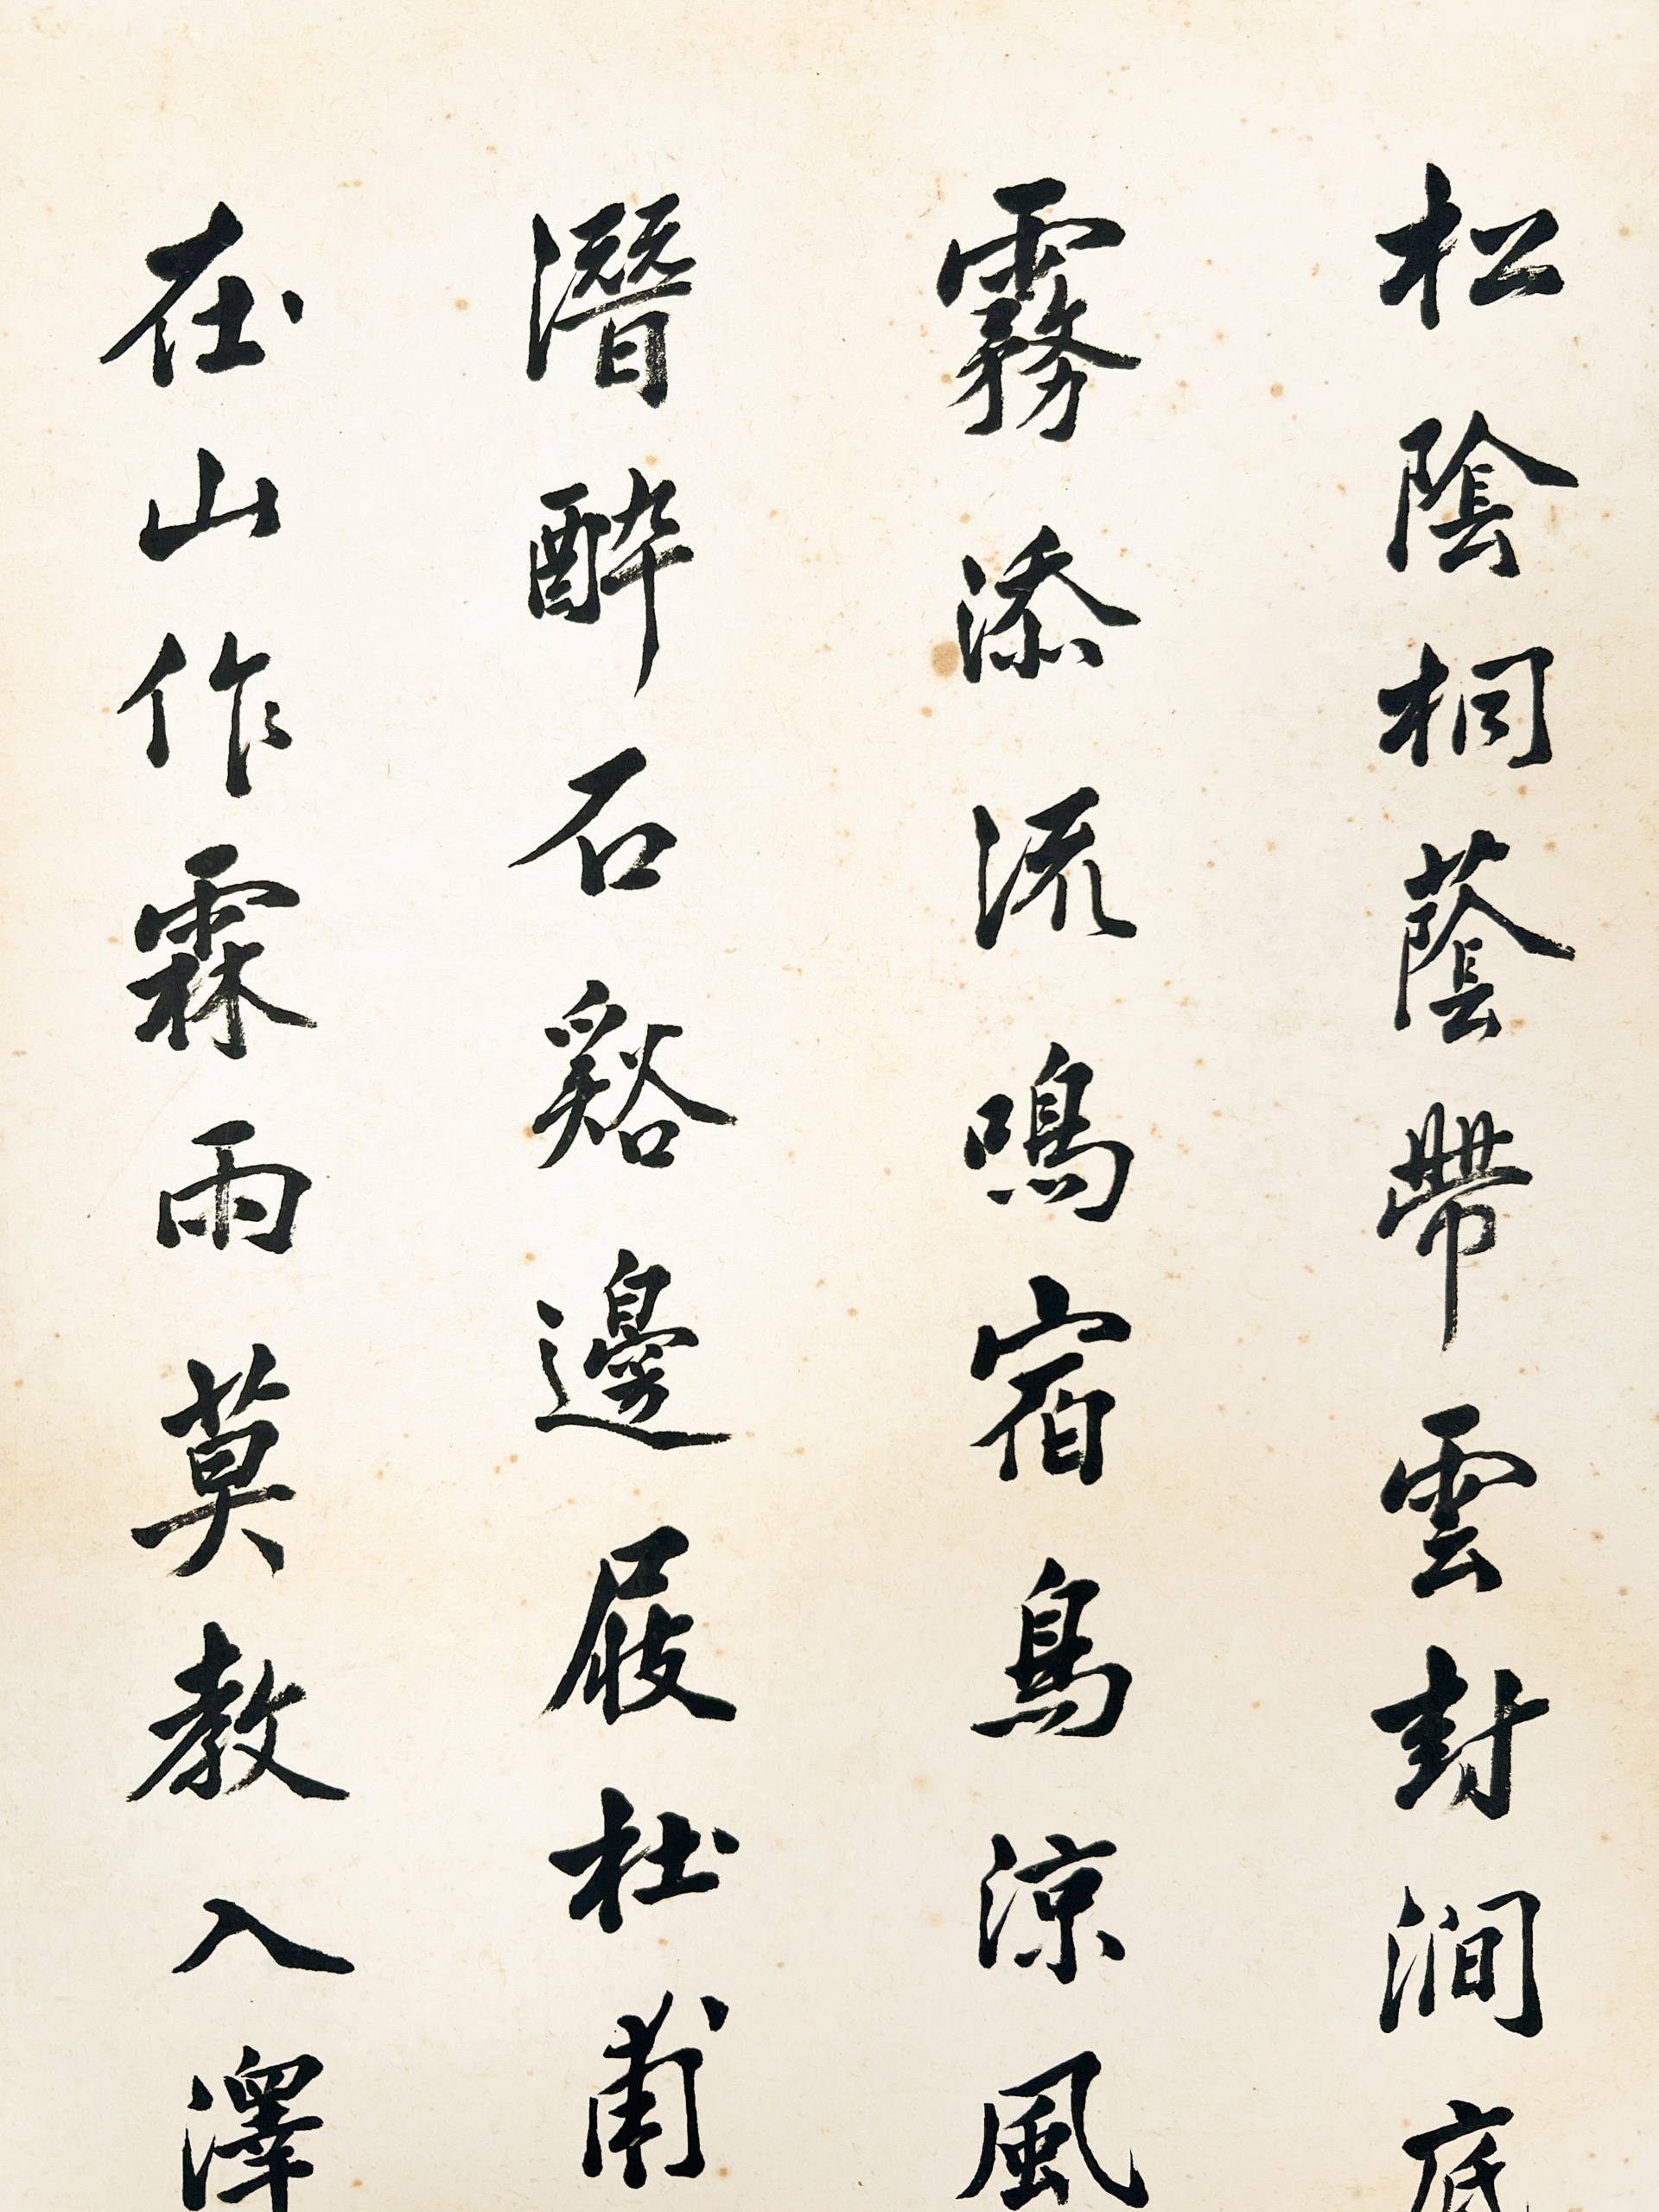 松陰桐蔭帶雲封澗底
霧添流鳴宿鳥涼風
潛醉石谿邊屐杜甫
在山作霖雨莫教入澤